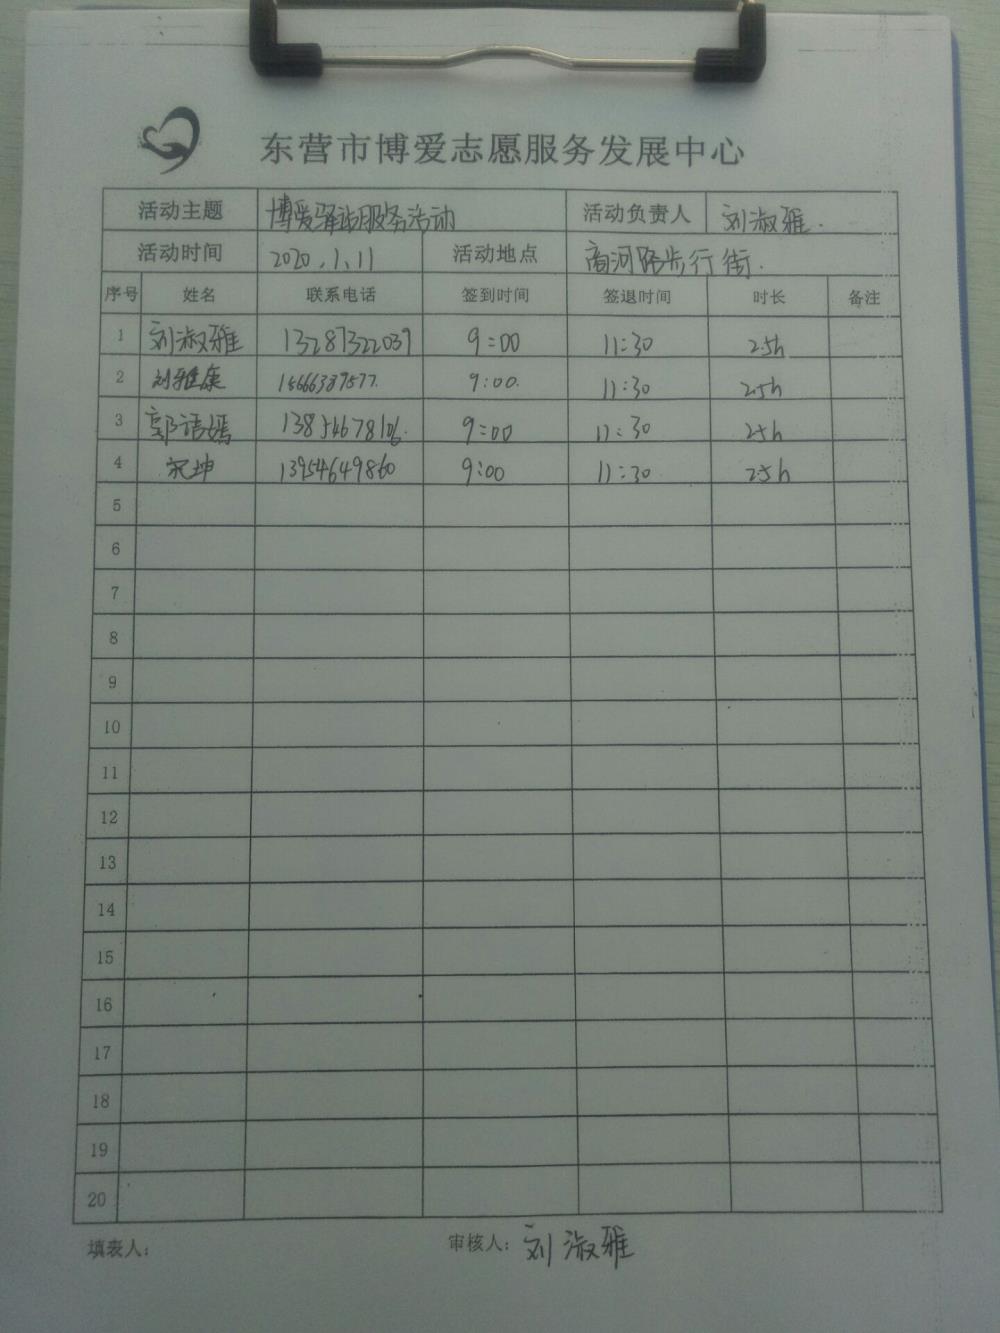 东营市博爱志愿服务发展中心
活动主题 博爱驿站服务活动 活动负责人 刘淑雅.
活动时间 2020.1.11 活动地点 商河路步行街.
序号 姓名 联系电话 签到时间 签退时间 时长 备注
1 刘淑雅 13287322039 9:00 11:30 2.5h
2 刘雅康 15666389577. 9:00. 11:30 2.5h
3 郭语嫣 13854678106. 9:00 11:30 2.5h
4 宋坤 13954649860 9:00 11:30 2.5h
5
6
7
8
9
10
11
12
13
14
15
16
17
18
19
20
填表人： 审核人：刘淑雅